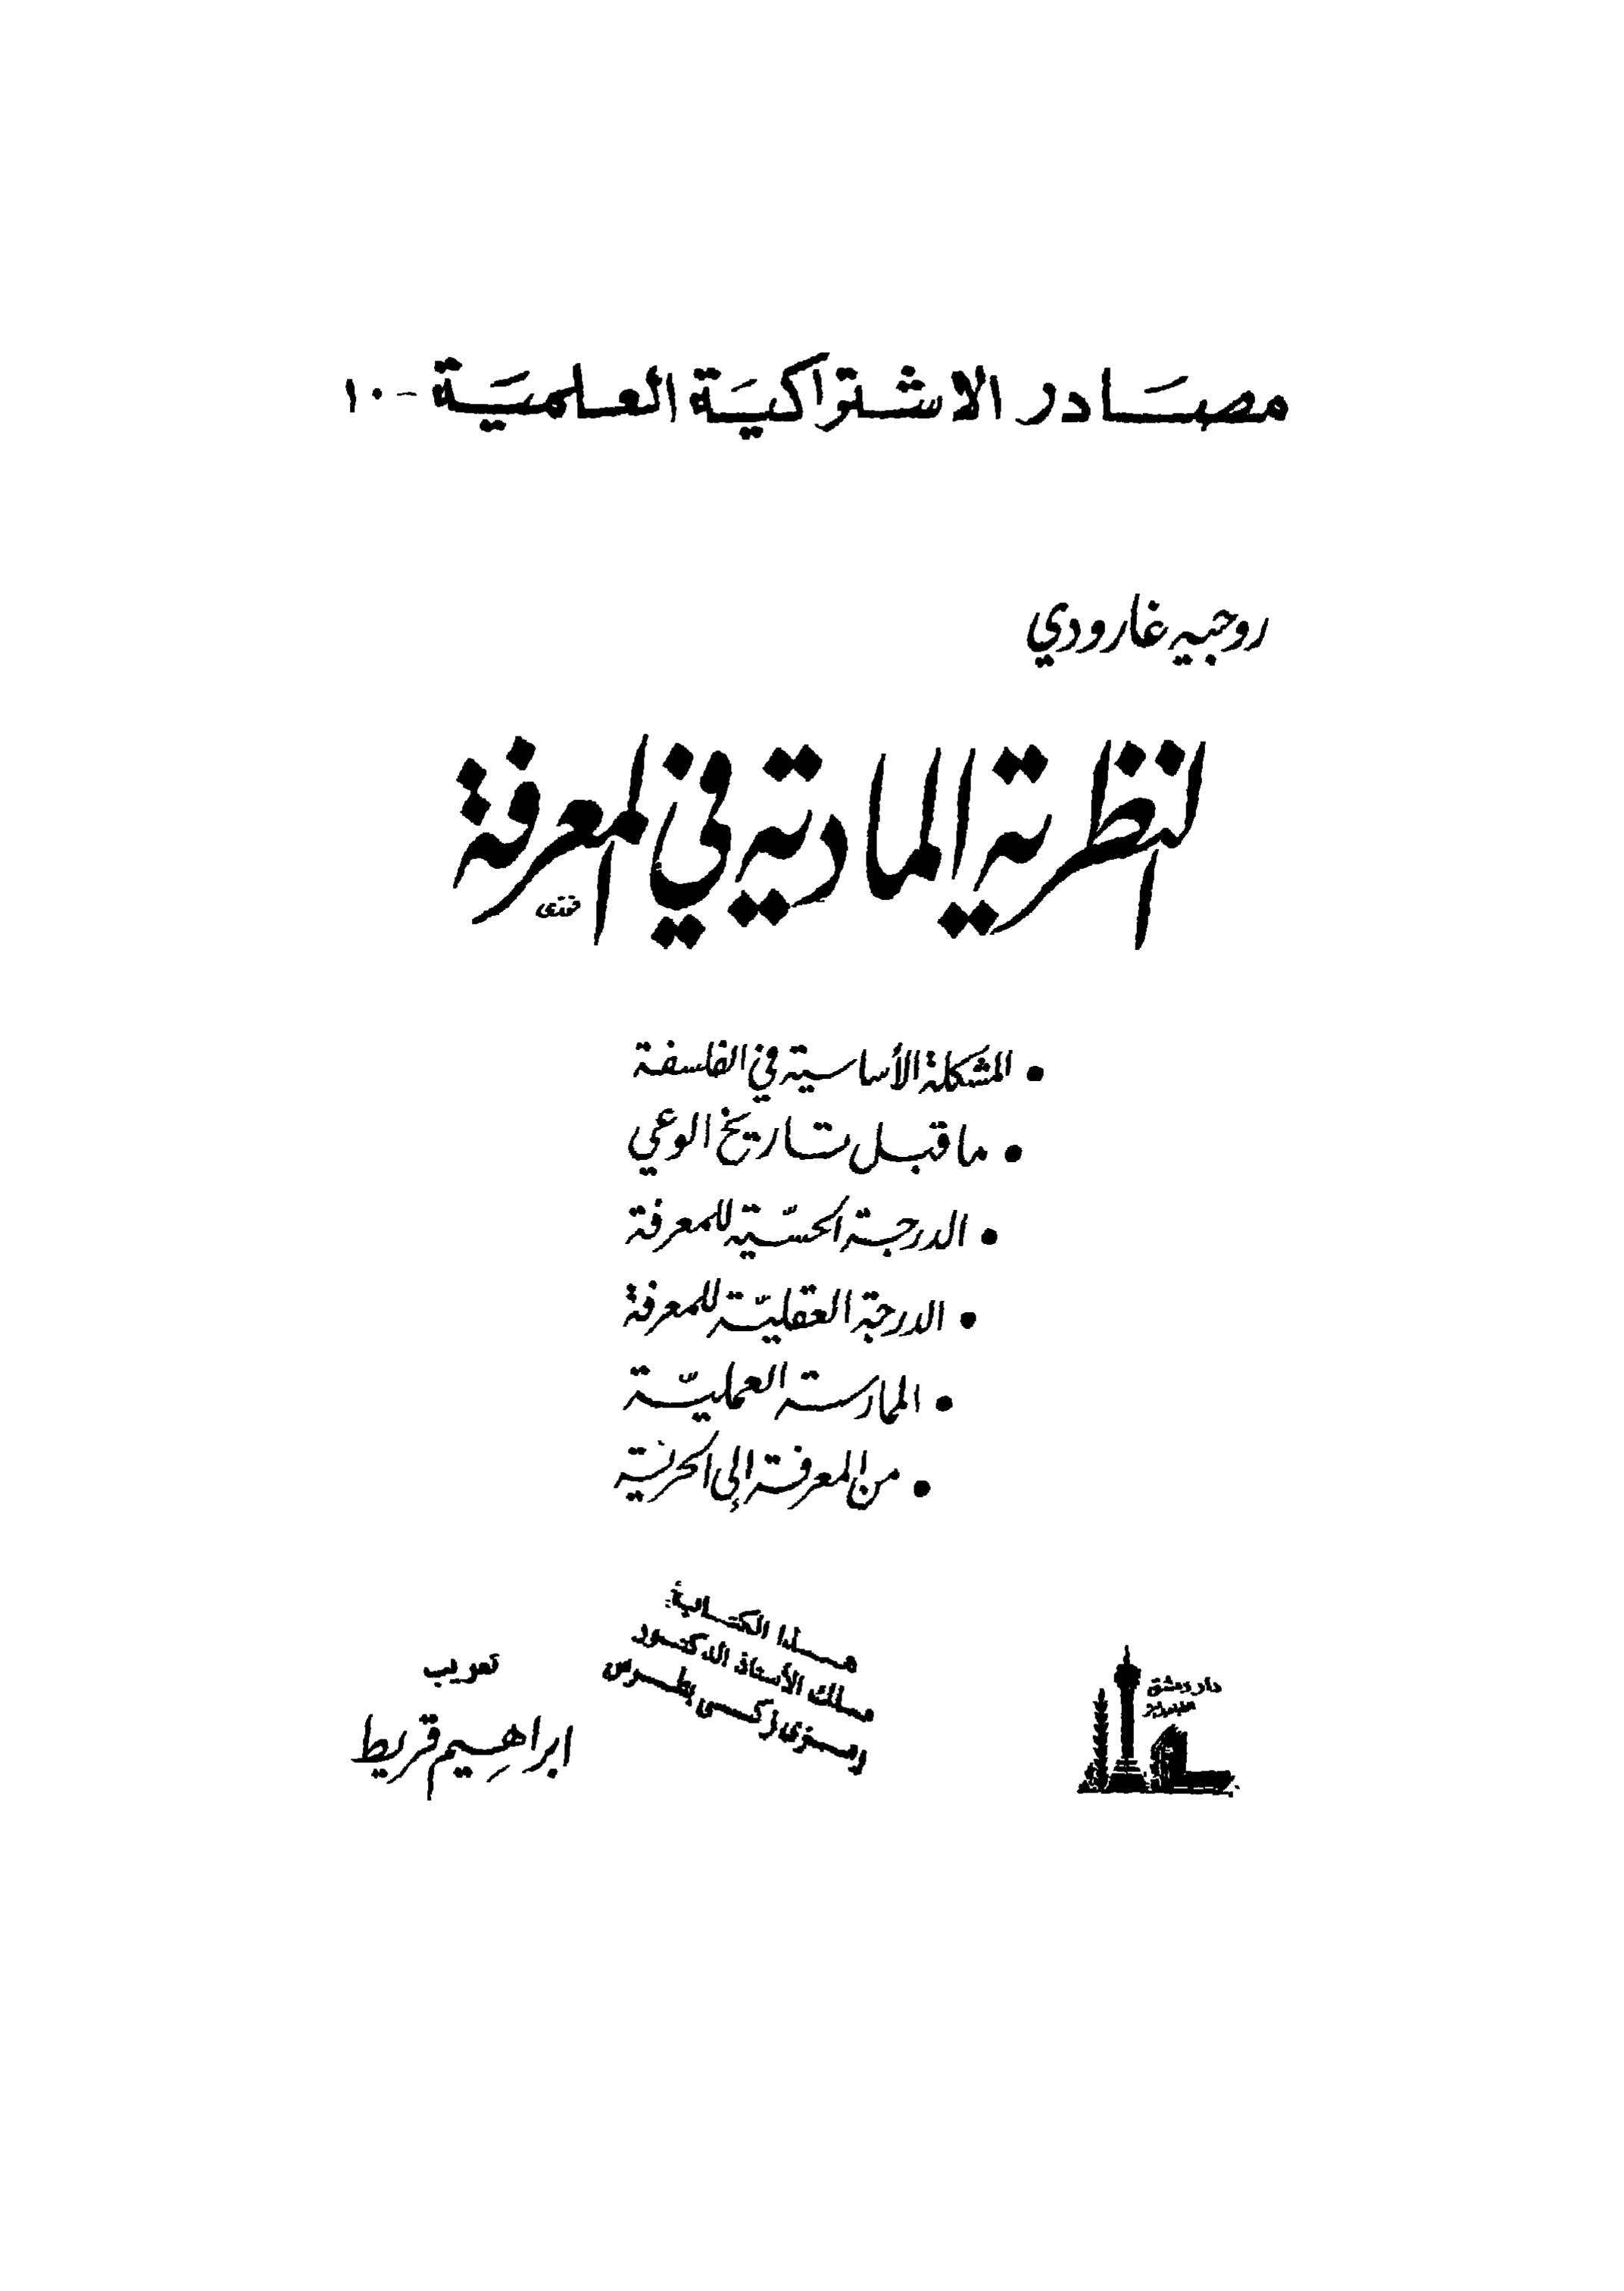 مصادر الاشتراكية العلمية - ١٠
روجيه غارودي
النظرية المادية في المعرفة
• المشكلة الأساسية في الفلسفة
• ما قبل تاريخ الوعي
• الدرجة الحسّية للمعرفة
• الدرجة العقليّة للمعرفة
• الممارسة العمليّة
• من المعرفة إلى الحريّة
هذا الكتاب
ملك الأستاذ الدكتور
رمزي زكي بطرس
تعريب
ابراهيم قريط
دار دمشق